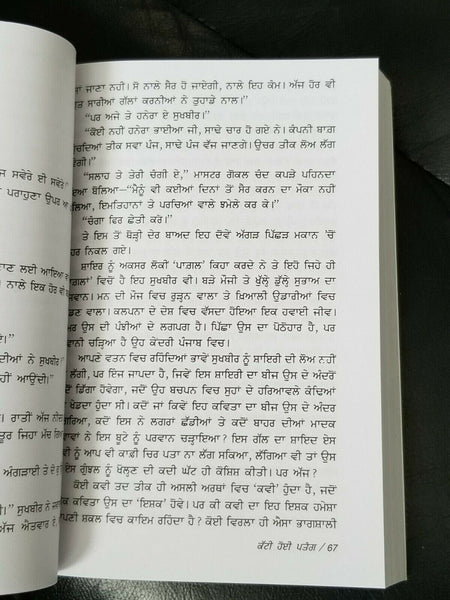 ਸਵੇਰੇ ਈ ਸਵੇਰੇ
ਪਰਾਹੁਣਾ ਉਪਰ ਆ
ਲਈ ਆਇਆ
ਨਾਲੇ ਇਕ ਹੋਰ ਵੀ
ਨੇ ਸੁਖਬੀਰ।”
ਨਹੀਂ ਆਉਂਦੀ।”
ਰਾਤੀਂ ਅੱਜ ਨੀਂਦ
ਜਿਹਾ ਮੱਚ ਗਿਆ
ਅੰਗੜਾਈ ਤੇ ਦੋ
ਸੁਖਬੀਰ ਨੇ ਜਵਾਬ
ਅੱਜ ਐਤਵਾਰ ਏ,
ਜਾਣਾ ਨਹੀਂ। ਸੋ ਨਾਲੇ ਸੈਰ ਹੋ ਜਾਏਗੀ, ਨਾਲੇ ਇਹ ਕੰਮ। ਅੱਜ ਹੋਰ ਵੀ
ਸਾਰੀਆਂ ਗੱਲਾਂ ਕਰਨੀਆਂ ਨੇ ਤੁਹਾਡੇ ਨਾਲ।”
“ਪਰ ਅਜੇ ਤੇ ਹਨੇਰਾ ਏ ਸੁਖਬੀਰ।”
“ਕੋਈ ਨਹੀਂ ਹਨੇਰਾ ਭਾਈਆ ਜੀ, ਸਾਢੇ ਚਾਰ ਹੋ ਗਏ ਨੇ। ਕੰਪਨੀ ਬਾਗ਼
ਤੀਕ ਸਵਾ ਪੰਜ, ਸਾਢੇ ਪੰਜ ਵੱਜ ਜਾਣਗੇ। ਉਚਰ ਤੀਕ ਲੋਅ ਲੱਗ
“ਸਲਾਹ ਤੇ ਤੇਰੀ ਚੰਗੀ ਏ,” ਮਾਸਟਰ ਗੋਕਲ ਚੰਦ ਕਪੜੇ ਪਹਿਨਦਾ
ਬੋਲਿਆ–“ਮੈਨੂੰ ਵੀ ਕਈਆਂ ਦਿਨਾਂ ਤੋਂ ਸੈਰ ਕਰਨ ਦਾ ਮੌਕਾ ਨਹੀਂ
ਇਮਤਿਹਾਨਾਂ ਤੇ ਪਰਚਿਆਂ ਵਾਲੇ ਝਮੇਲੇ ਕਰ ਕੇ।”
“ਚੰਗਾ ਫਿਰ ਛੇਤੀ ਕਰੋ।”
ਤੇ ਇਸ ਤੋਂ ਥੋੜ੍ਹੀ ਦੇਰ ਬਾਅਦ ਇਹ ਦੋਵੇਂ ਅੱਗੜ ਪਿੱਛੜ ਮਕਾਨ 'ਚੋਂ
ਨਿਕਲ ਗਏ।
ਸ਼ਾਇਰ ਨੂੰ ਅਕਸਰ ਲੋਕੀਂ ‘ਪਾਗ਼ਲ’ ਕਿਹਾ ਕਰਦੇ ਨੇ ਤੇ ਇਹੋ ਜਿਹੇ ਹੀ
ਵਿਚੋਂ ਹੈ ਇਹ ਸੁਖਬੀਰ ਵੀ। ਬੜੇ ਮੌਜੀ ਤੇ ਖੁੱਲ੍ਹੇ ਡੁੱਲ੍ਹੇ ਸੁਭਾਅ ਦਾ
ਮਨ ਦੀ ਮੌਜ ਵਿਚ ਰੁੜ੍ਹਨ ਵਾਲਾ ਤੇ ਖ਼ਿਆਲੀ ਉਡਾਰੀਆਂ ਵਿਚ
ਵਾਲਾ। ਕਲਪਨਾ ਦੇ ਦੇਸ ਵਿਚ ਵੱਸਦਾ ਹੋਇਆ ਇਕ ਹਵਾਈ ਜੀਵ।
ਉਸ ਦੀ ਪੰਝੀਆਂ ਦੇ ਲਗਪਗ ਹੈ। ਪਿੱਛਾ ਉਸ ਦਾ ਪੋਠੋਹਾਰ ਹੈ, ਪਰ
ਚੜ੍ਹਿਆ ਹੈ ਉਹ ਕੇਂਦਰੀ ਪੰਜਾਬ ਵਿਚ।
ਆਪਣੇ ਵਤਨ ਵਿਚ ਰਹਿੰਦਿਆਂ ਭਾਵੇਂ ਸੁਖਬੀਰ ਨੂੰ ਸ਼ਾਇਰੀ ਦੀ ਲੋਅ ਨਹੀਂ
ਲੱਗੀ, ਪਰ ਇੰਜ ਜਾਪਦਾ ਹੈ, ਜਿਵੇਂ ਇਸ ਸ਼ਾਇਰੀ ਦਾ ਬੀਜ ਉਸ ਦੇ ਅੰਦਰ
ਡਿੱਗਾ ਹੋਵੇਗਾ, ਜਦੋਂ ਉਹ ਬਚਪਨ ਵਿਚ ਸੁਹਾਂ ਦੇ ਹਰਿਆਵਲੇ ਕੰਢਿਆਂ
ਖੇਡਦਾ ਹੁੰਦਾ ਸੀ। ਕਦੋਂ ਜਾਂ ਕਿਵੇਂ ਇਹ ਕਵਿਤਾ ਦਾ ਬੀਜ ਉਸ ਦੇ ਅੰਦਰ
ਕਦੋਂ ਇਸ ਨੇ ਲਗਰਾਂ ਛੱਡੀਆਂ ਤੇ ਕਦੋਂ ਬਾਹਰ ਦੀਆਂ ਮਾਦਕ
ਨੇ ਇਸ ਬੂਟੇ ਨੂੰ ਪਰਵਾਨ ਚੜ੍ਹਾਇਆ? ਇਸ ਗੱਲ ਦਾ ਸ਼ਾਇਦ ਏਸ
ਨੂੰ ਆਪ ਵੀ ਕਾਫ਼ੀ ਚਿਰ ਪਤਾ ਨਾ ਲੱਗ ਸਕਿਆ, ਲੱਗਿਆ ਵੀ ਤਾਂ ਉਸ
ਗੁੰਝਲ ਨੂੰ ਖੋਲ੍ਹਣ ਦੀ ਕਦੀ ਘੱਟ ਹੀ ਕੋਸ਼ਿਸ਼ ਕੀਤੀ। ਪਰ ਅੱਜ?
ਕੋਈ ਕਵੀ ਤਦ ਤੀਕ ਹੀ ਅਸਲੀ ਅਰਥਾਂ ਵਿਚ ‘ਕਵੀ’ ਹੁੰਦਾ ਹੈ, ਜਦੋਂ
ਕਵਿਤਾ ਉਸ ਦਾ ‘ਇਸ਼ਕ’ ਹੋਵੇ। ਪਰ ਕੀ ਕਵੀ ਦਾ ਇਹ ਇਸ਼ਕ ਹਮੇਸ਼ਾ
ਸ਼ਕਲ ਵਿਚ ਕਾਇਮ ਰਹਿੰਦਾ ਹੈ? ਕੋਈ ਵਿਰਲਾ ਹੀ ਐਸਾ ਭਾਗਸ਼ਾਲੀ
ਕੱਟੀ ਹੋਈ ਪਤੰਗ / 67